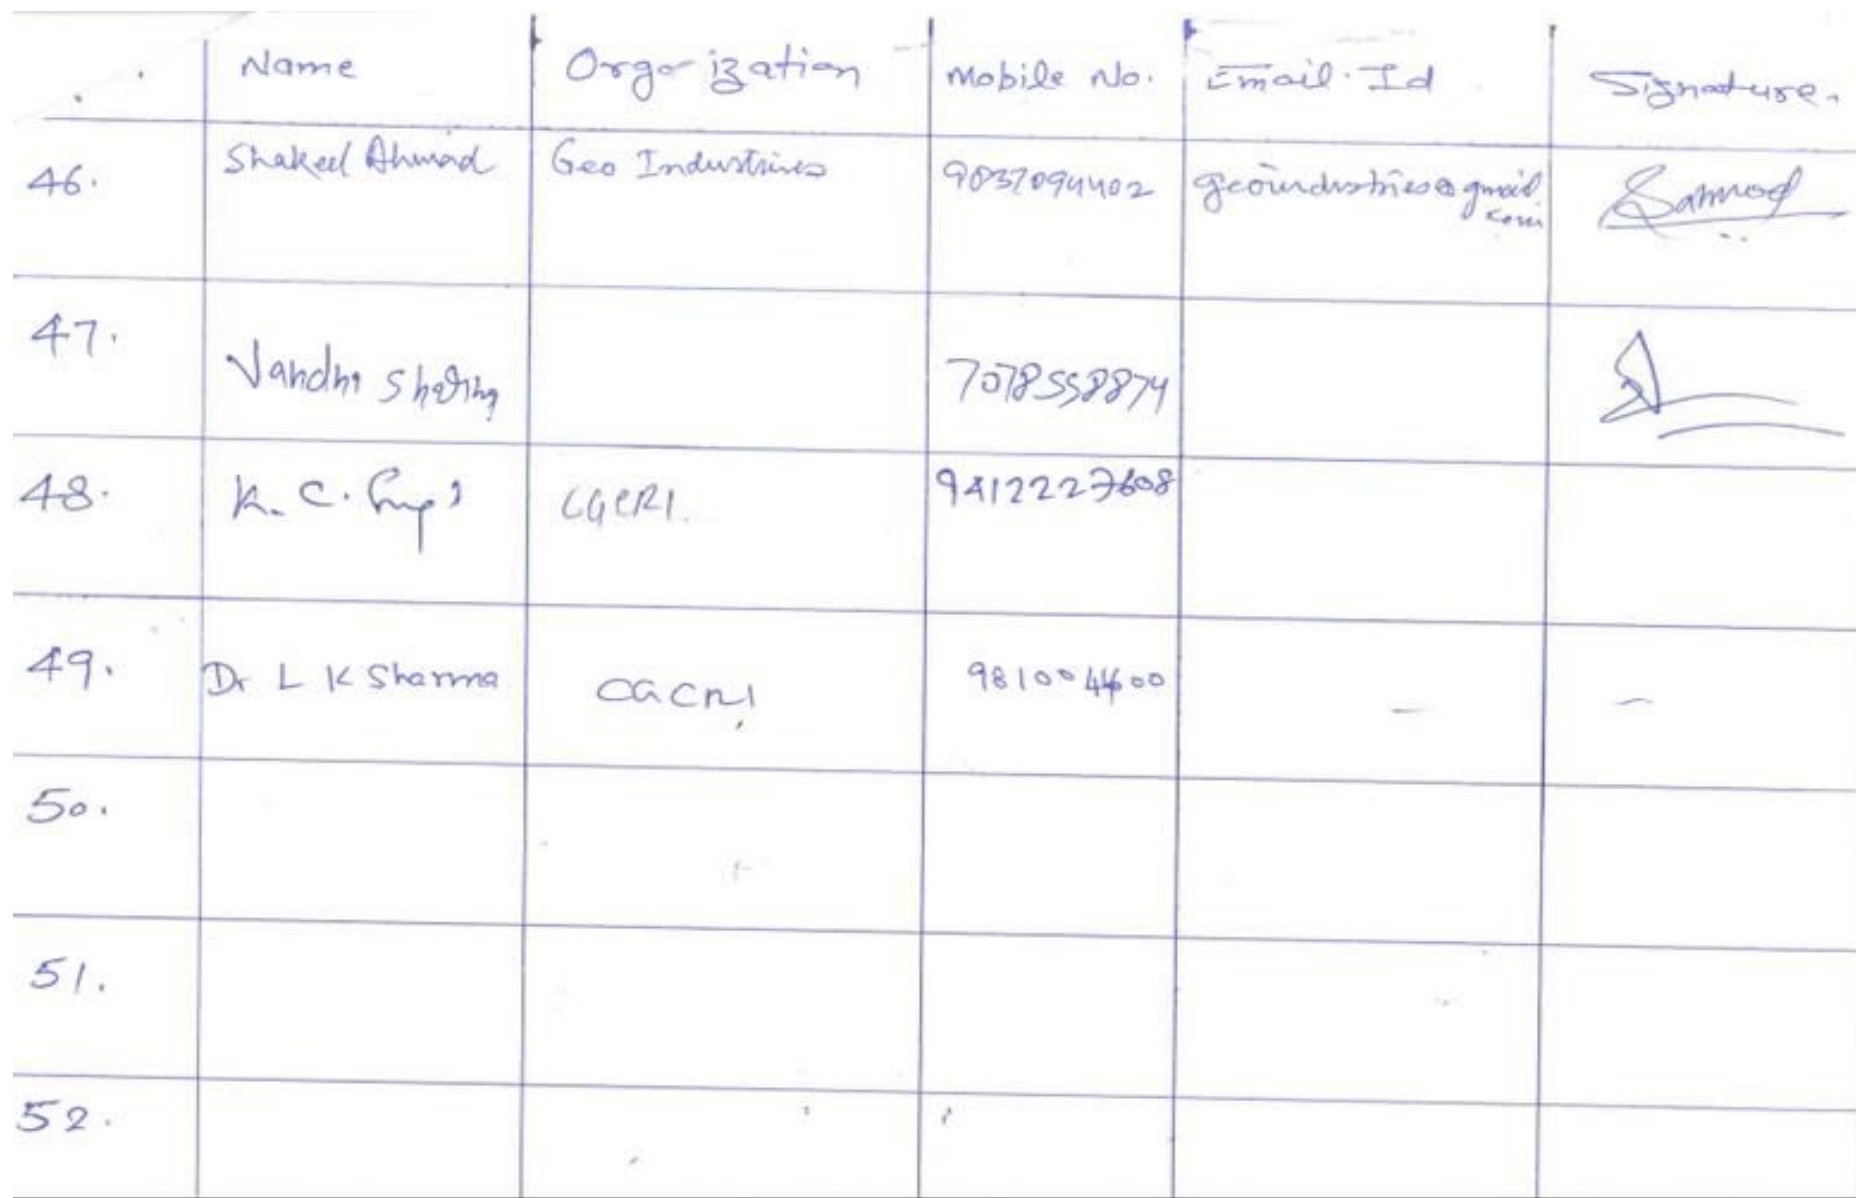 Name Orga ization Mobile No. Email. Id Signature.
46. Shakeel Ahmad Geo Industries 9837094402 geoindustries@gmail
.com
47. Vandna Sharma 7078558874
48. K. C. CGCRI 9412227608
49. Dr L K Sharma CGCRI 9810044600 - -
50.
51.
52.